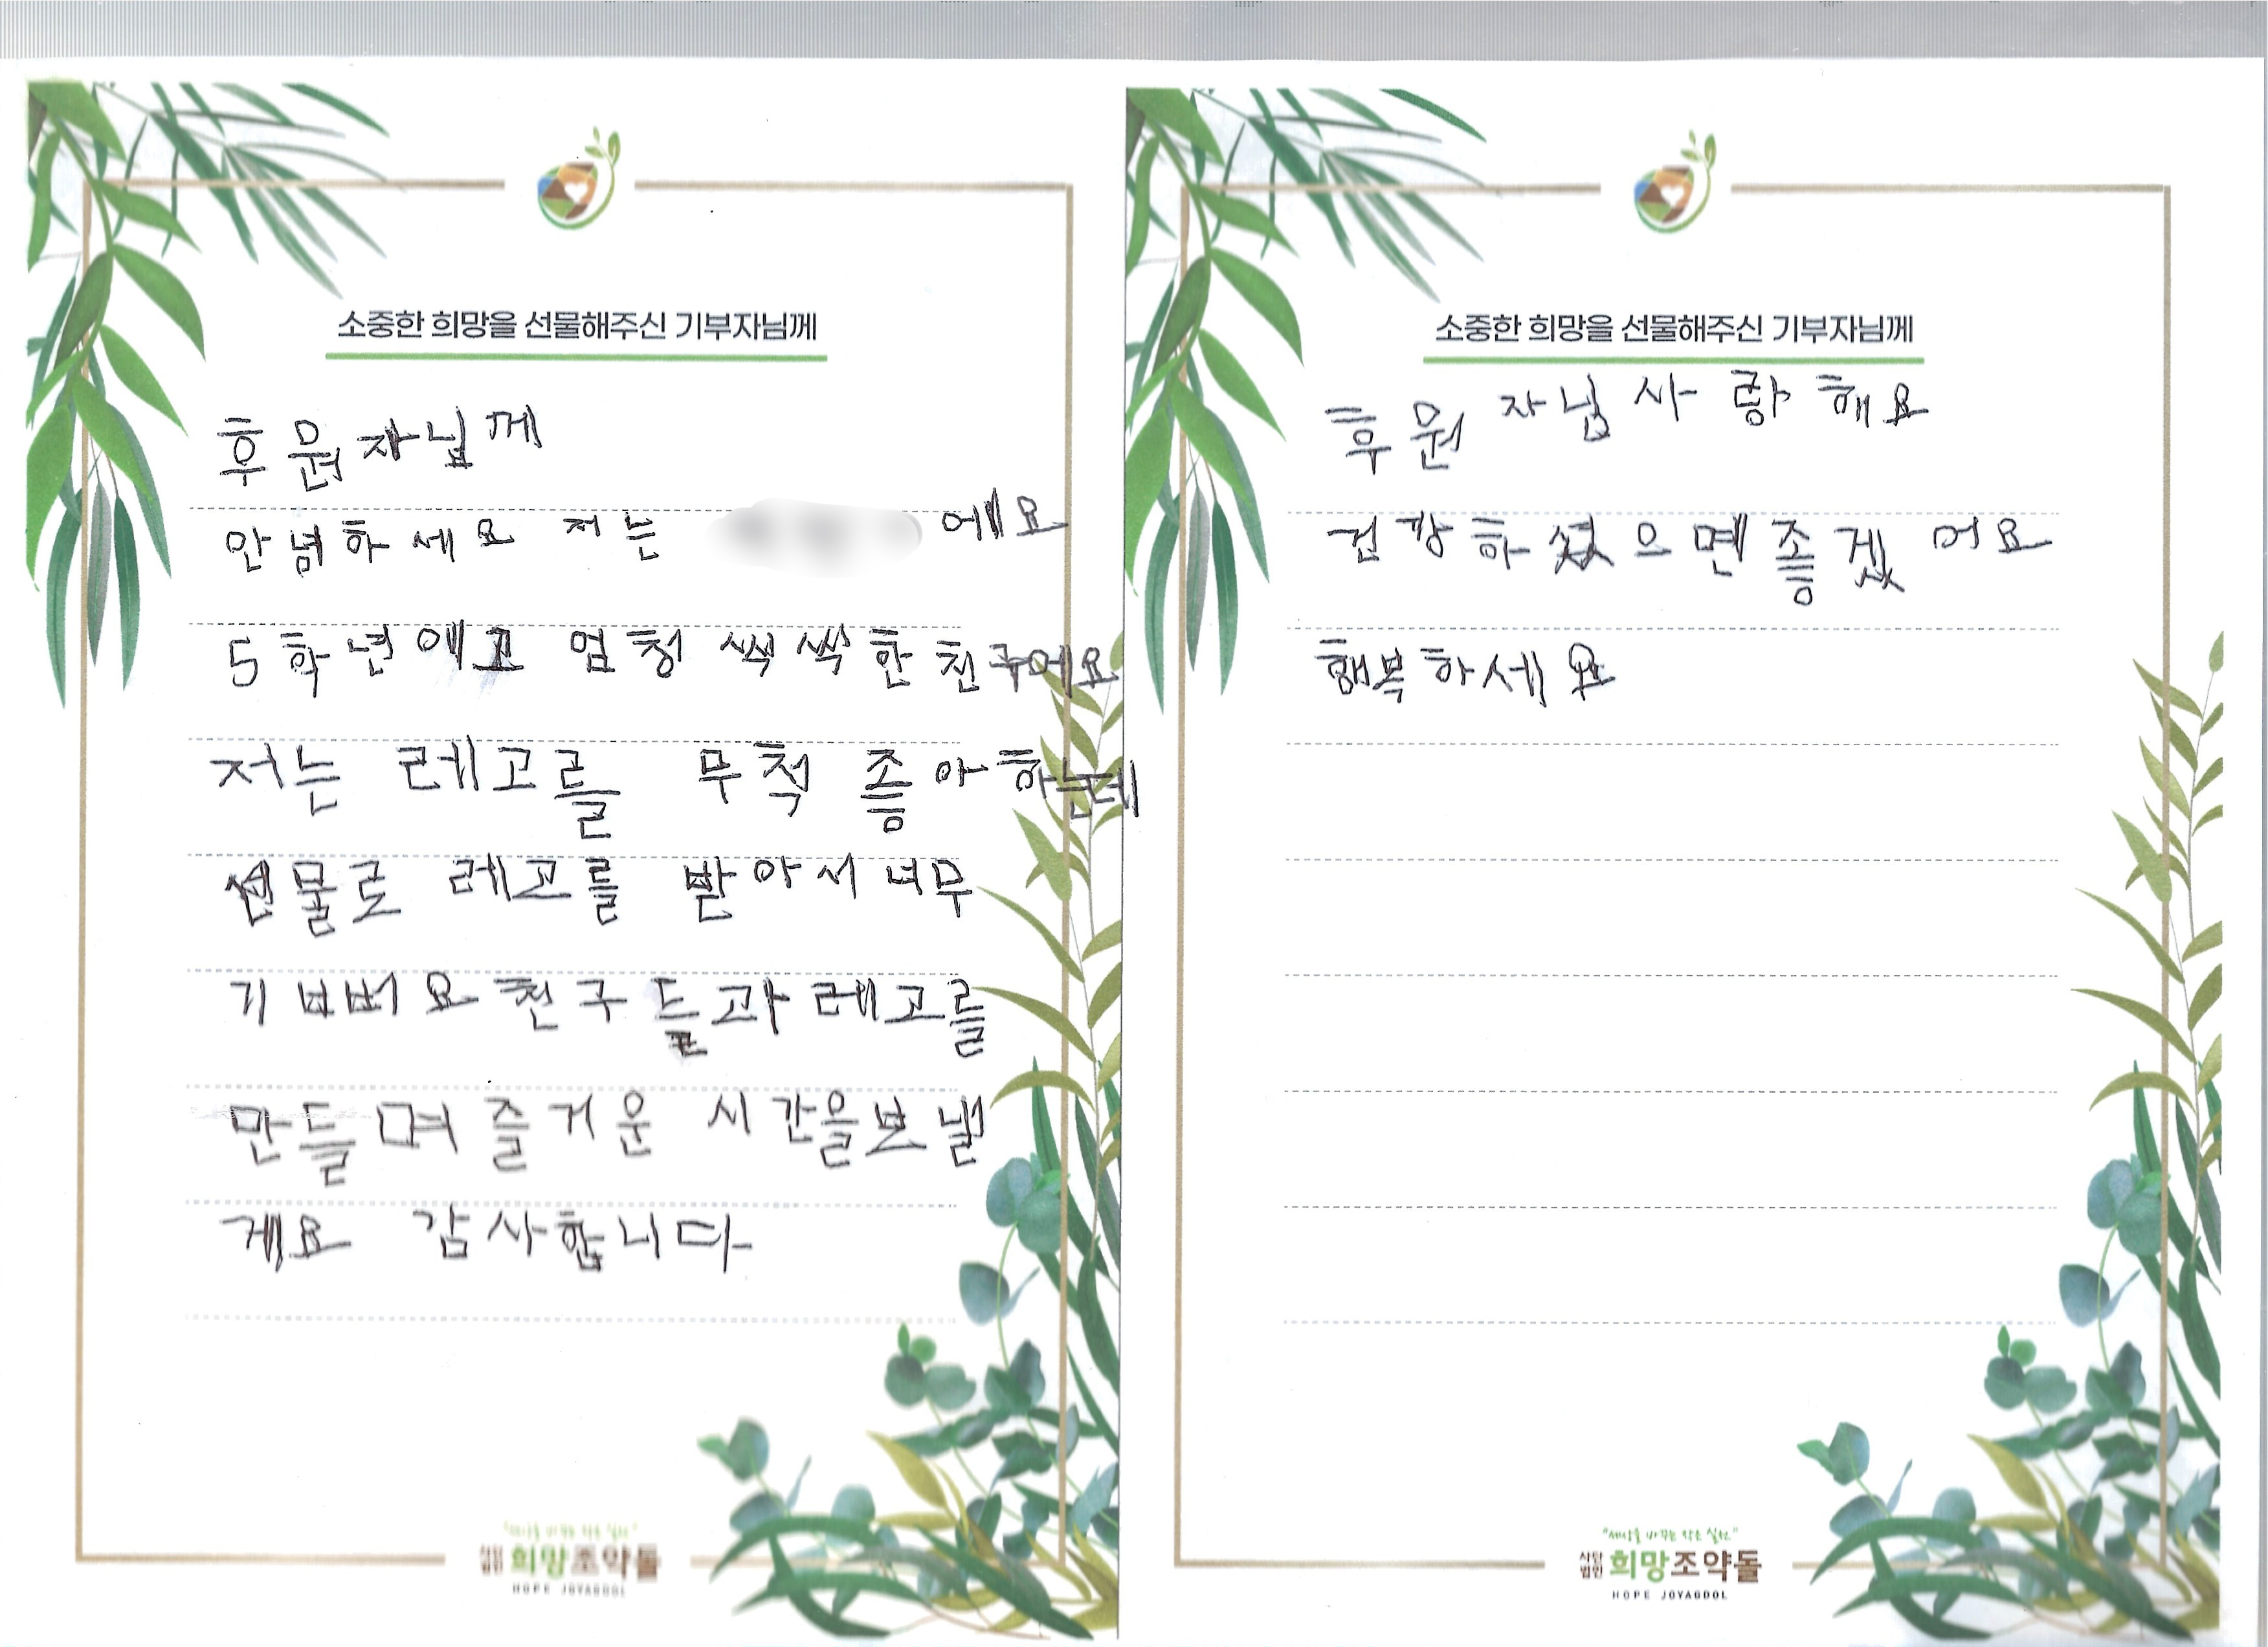 소중한 희망을 선물해주신 기부자님께
후원자님께
안녕하세요 저는 에요
5학년에고 엄청 씩씩한 친구에요
저는 레고를 무척 좋아하는데
선물로 레고를 받아서 너무
기뻐요 친구들과 레고를
만들며 즐거운 시간을보낼
게요 감사합니다
"세상을 바꾸는 작은 실천"
사단법인 희망조약돌
HOPE JOYAGDOL
소중한 희망을 선물해주신 기부자님께
후원자님사랑해요
건강하셨으면 좋겠어요
행복하세요
"세상을 바꾸는 작은 실천"
사단법인 희망조약돌
HOPE JOYAGDOL